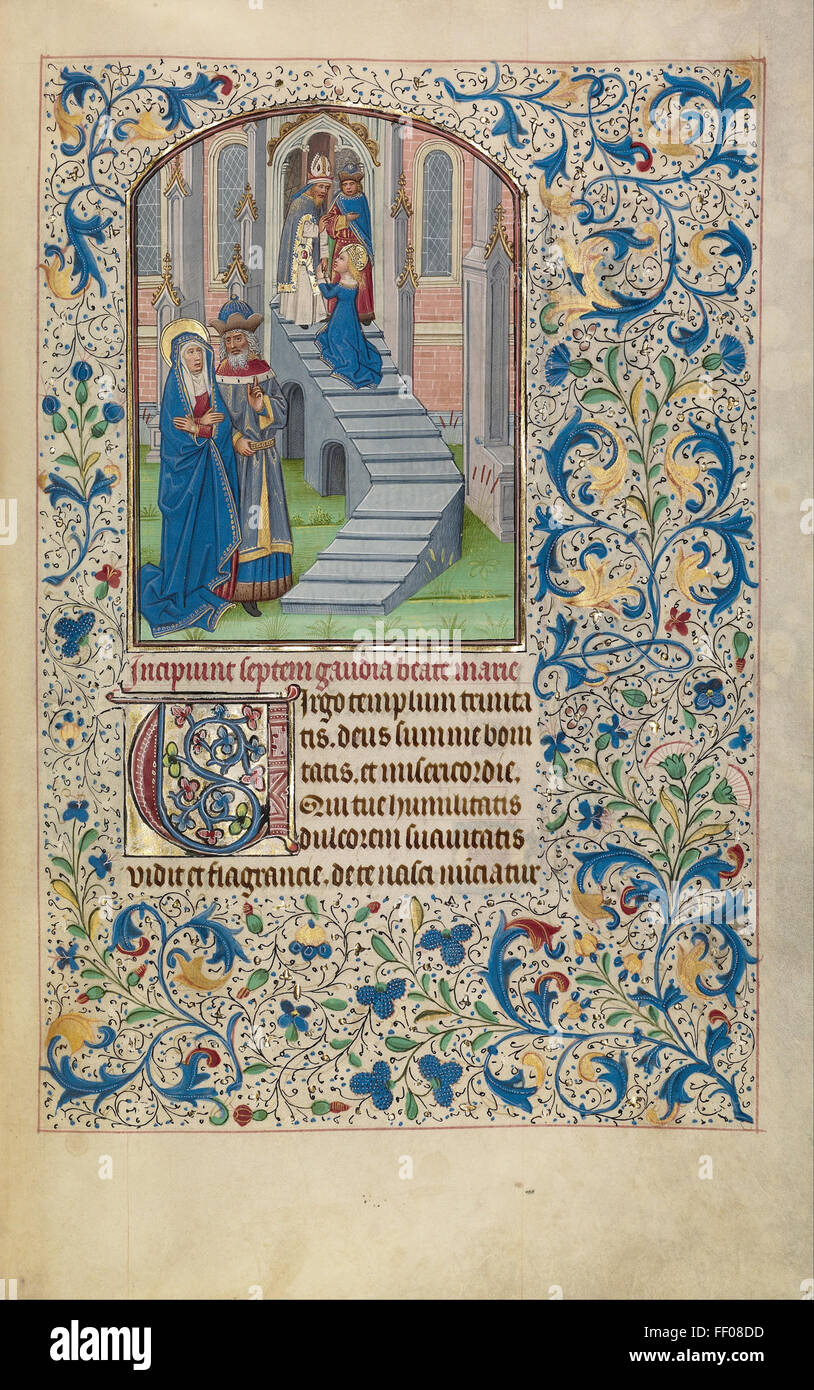 Incipiunt septem gaudia beate marie
Virgo templum trinita
tis. deus summe boni
tatis. et misericordie.
Qui tue humilitatis
dulcorem suavitatis
vidit et flagrancie. de te nasci nūciatur
a
alamy stock photo
FF08DD
www.alamy.com